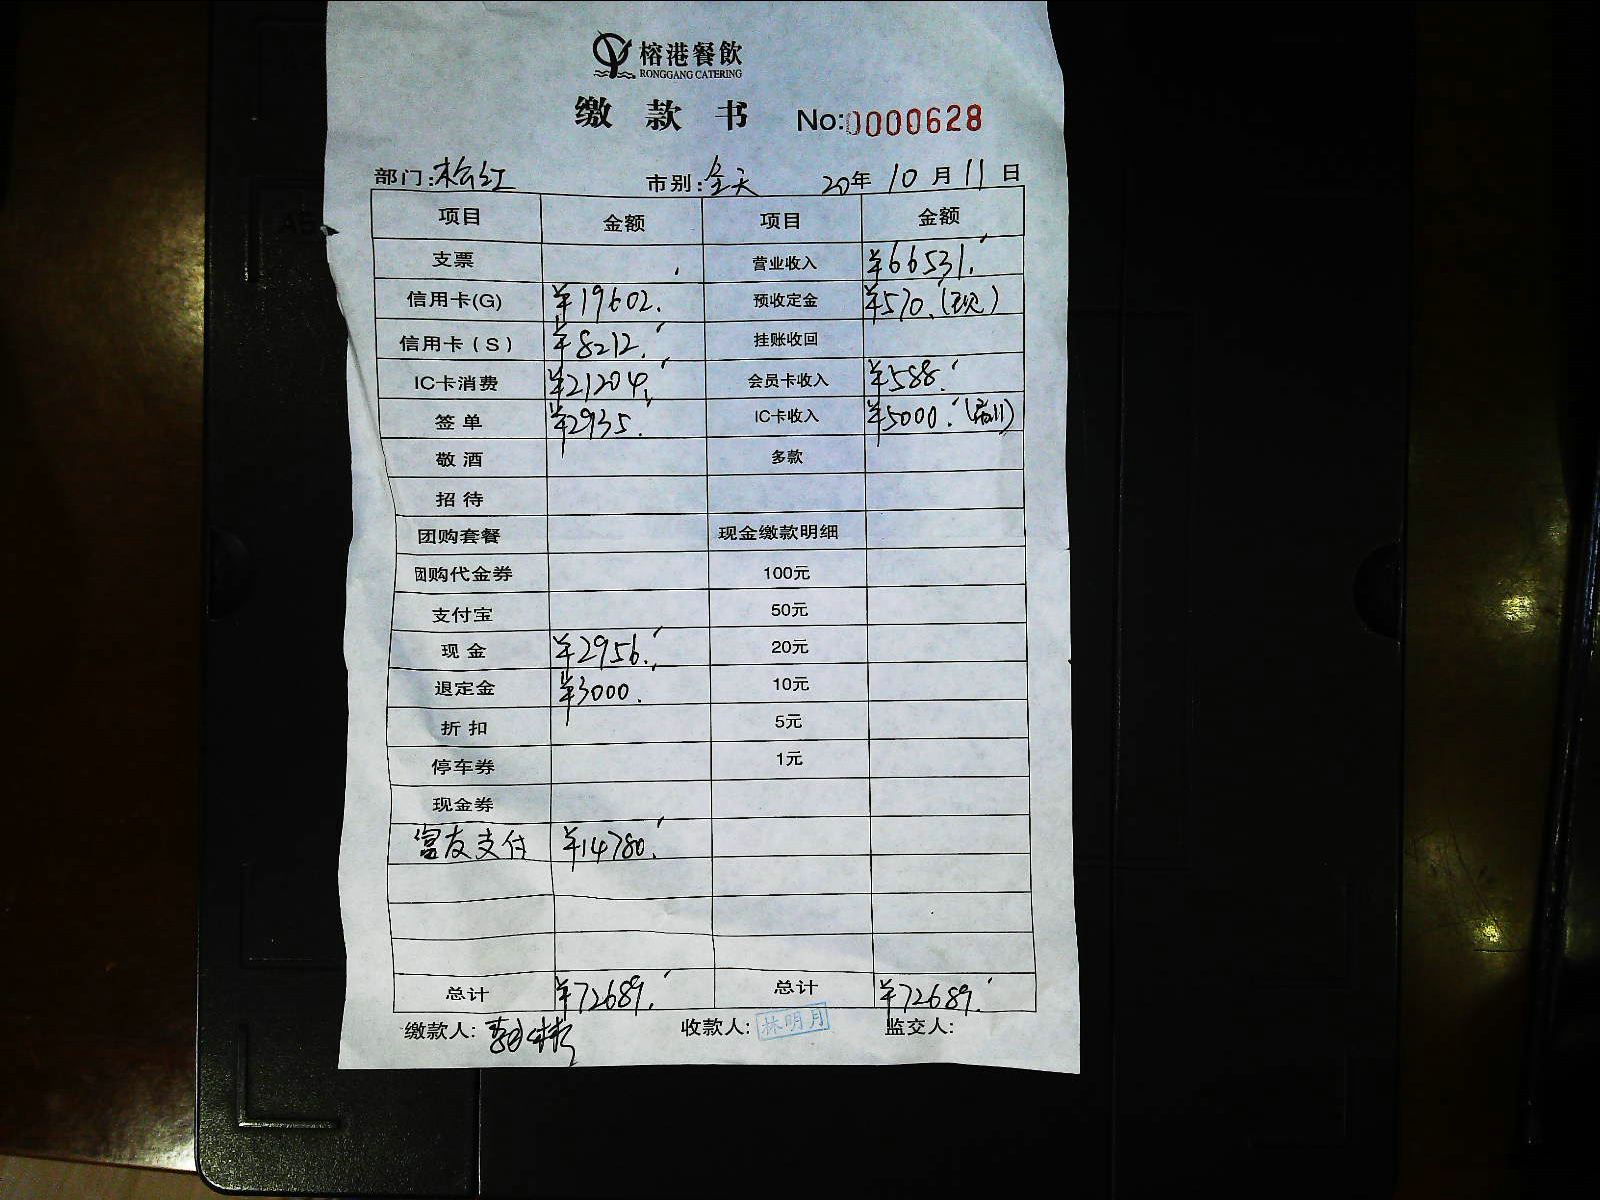 榕港餐飲
RONGGANG CATERING
缴款书 No:0000628
部门: 市别:全天 20年 10月 11日
项目 金额 项目 金额
支票 营业收入 ¥66531.
信用卡(G) ¥19602. 预收定金 ¥570.(现)
信用卡(S) ¥8212. 挂账收回
IC卡消费 ¥21204. 会员卡收入 ¥588.
签单 ¥2935. IC卡收入 ¥5000.
敬酒 多款
招待
团购套餐 现金缴款明细
团购代金券 100元
支付宝 50元
现金 ¥2956. 20元
退定金 ¥3000. 10元
折扣 5元
停车券 1元
现金券
富友支付 ¥14780.
总计 ¥72689. 总计 ¥72689.
缴款人: 收款人:林明月 监交人: